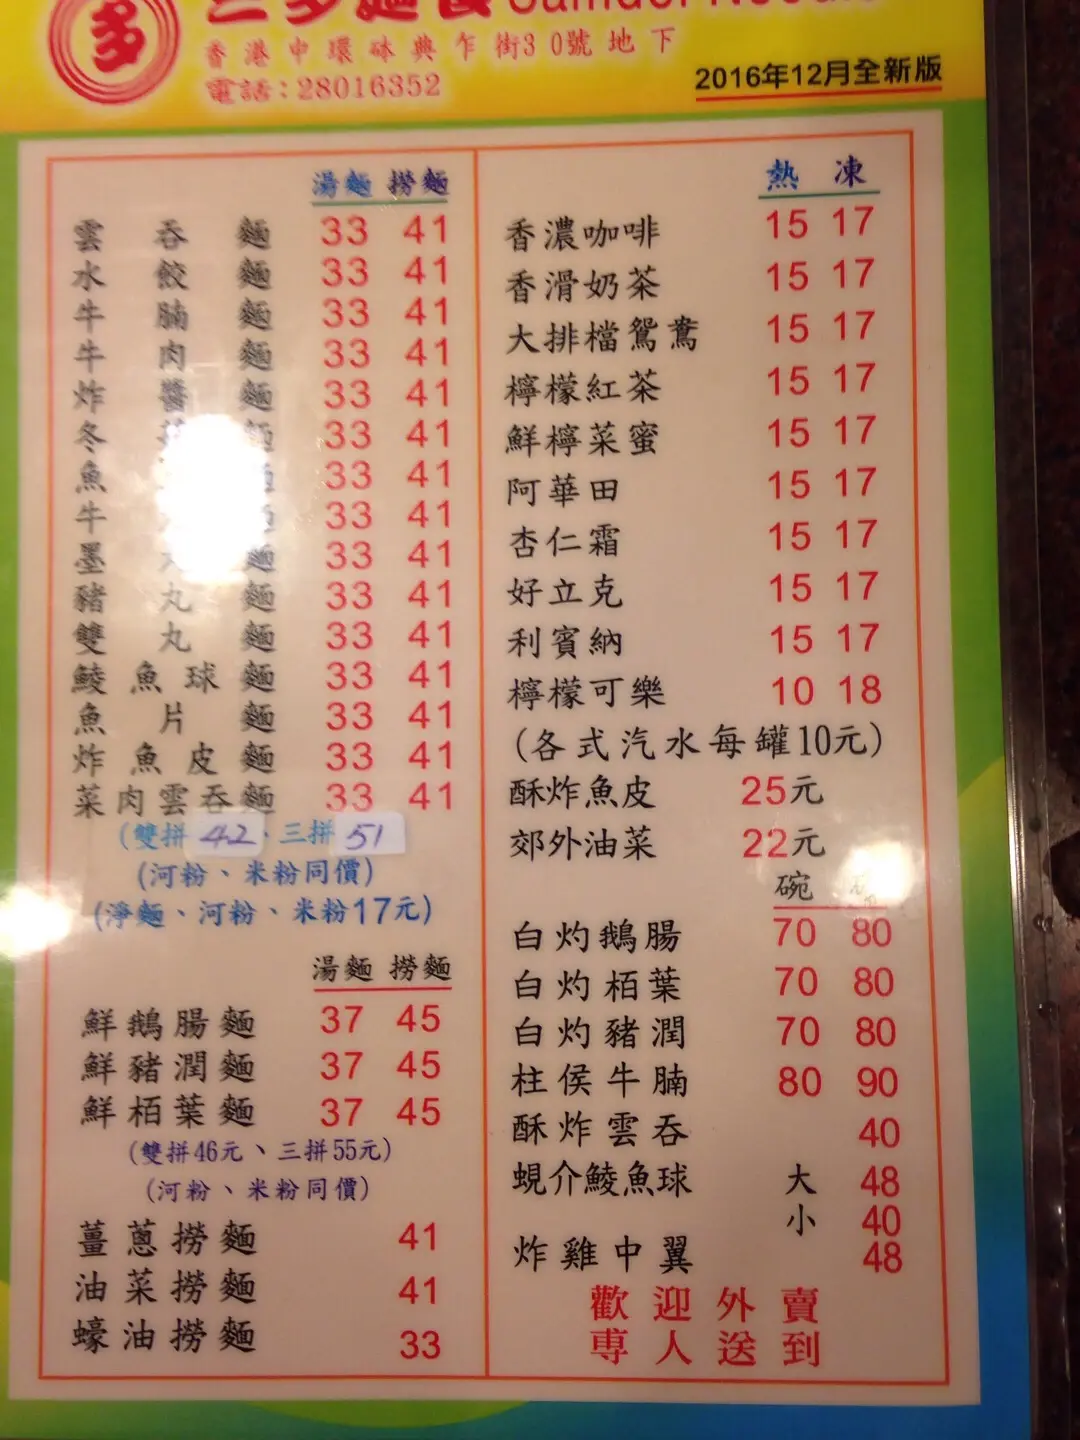 三多麵食 Samdor Noodle
多
香港中環砵典乍街30號地下
電話：28016352
2016年12月全新版
湯麵 撈麵
雲吞麵 33 41
水餃麵 33 41
牛腩麵 33 41
牛肉麵 33 41
炸醬麵 33 41
冬 麵 33 41
魚 麵 33 41
牛 麵 33 41
墨 麵 33 41
豬丸麵 33 41
雙丸麵 33 41
鯪魚球麵 33 41
魚片麵 33 41
炸魚皮麵 33 41
菜肉雲吞麵 33 41
(雙拼42、三拼51
(河粉、米粉同價)
(淨麵、河粉、米粉17元)
湯麵 撈麵
鮮鵝腸麵 37 45
鮮豬潤麵 37 45
鮮栢葉麵 37 45
(雙拼46元、三拼55元)
(河粉、米粉同價)
薑蔥撈麵 41
油菜撈麵 41
蠔油撈麵 33
熱 凍
香濃咖啡 15 17
香滑奶茶 15 17
大排檔鴛鴦 15 17
檸檬紅茶 15 17
鮮檸菜蜜 15 17
阿華田 15 17
杏仁霜 15 17
好立克 15 17
利賓納 15 17
檸檬可樂 10 18
(各式汽水每罐10元)
酥炸魚皮 25元
郊外油菜 22元
碗
白灼鵝腸 70 80
白灼栢葉 70 80
白灼豬潤 70 80
柱侯牛腩 80 90
酥炸雲吞 40
蜆介鯪魚球 大 48
小 40
炸雞中翼 48
歡迎外賣
專人送到